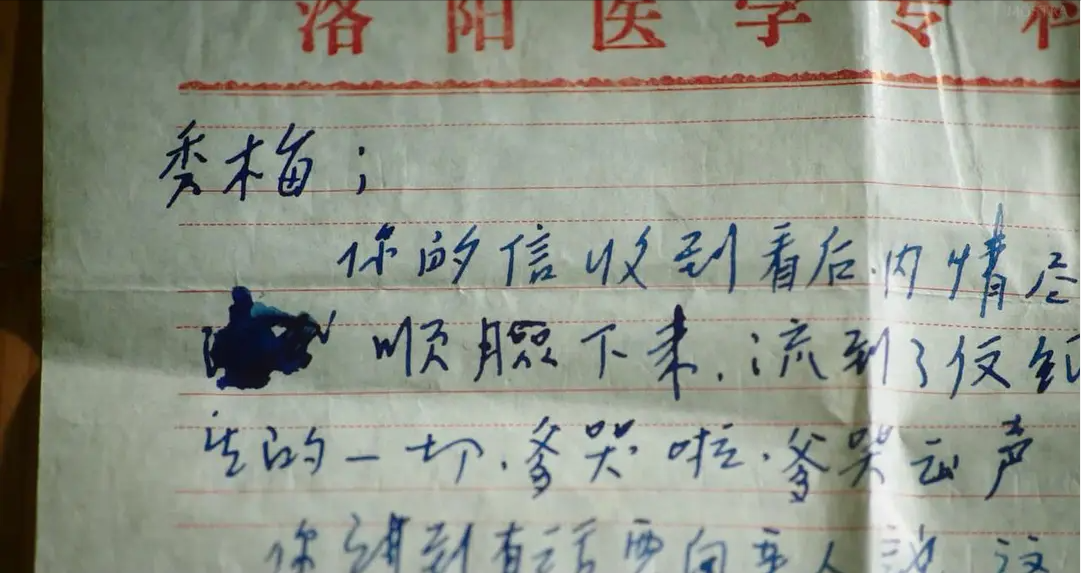 洛阳医学专科
秀梅;
你的信收到看后.内情尽
顺腮下来.流到了仮纸
生的一切.爹哭啦.爹哭出声
你讲到有话要向亲人说 这